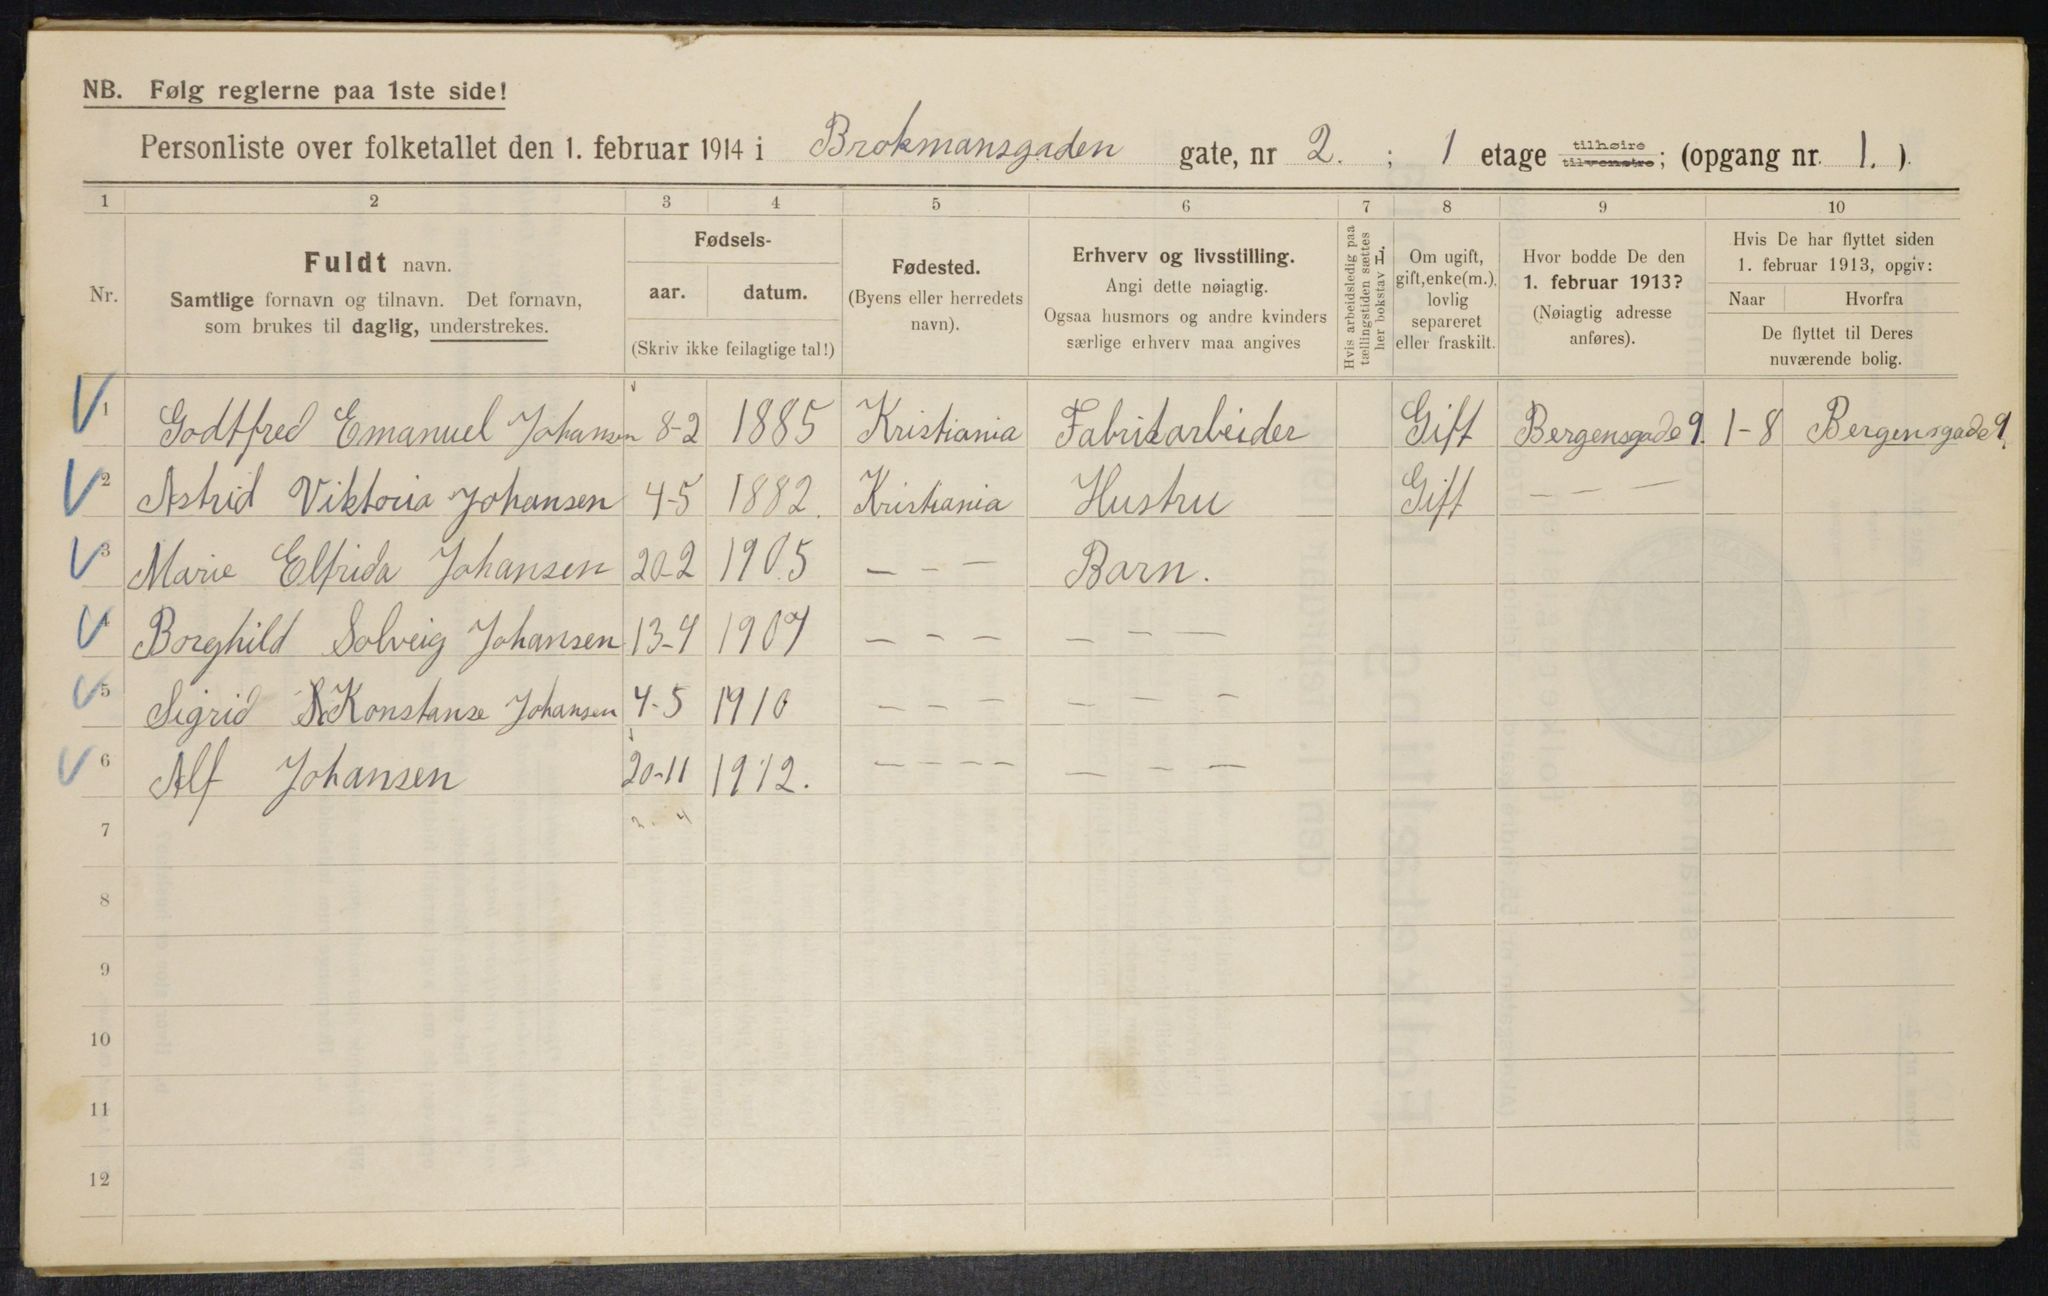 NB. Følg reglerne paa 1ste side!
Personliste over folketallet den 1. februar 1914 i Brokmansgaden gate, nr 2. ; 1 etage tilhøire tilvenstre; (opgang nr. 1. ).
1 2 3 4 5 6 7 8 9 10
Nr.
Fuldt navn.
Samtlige fornavn og tilnavn. Det fornavn,
som brukes til daglig, understrekes.
Fødsels-
aar. datum.
(Skriv ikke feilagtige tal!)
Fødested.
(Byens eller herredets
navn).
Erhverv og livsstilling.
Angi dette nøiagtig.
Ogsaa husmors og andre kvinders
særlige erhverv maa angives
Hvis arbeidsledig paa
tællingstiden sættes
her bokstav L.
Om ugift,
gift, enke(m.),
lovlig
separeret
eller fraskilt.
Hvor bodde De den
1. februar 1913?
(Nøiagtig adresse
anføres).
Hvis De har flyttet siden
1. februar 1913, opgiv:
Naar Hvorfra
De flyttet til Deres
nuværende bolig.
1 Godtfred Emanuel Johansen 8-2 1885 Kristiania Fabrikarbeider Gift Bergensgade 9. 1-8 Bergensgade 9.
2 Astrid Viktoria Johansen 4-5 1882. Kristiania Hustru Gift — — —
3 Marie Elfrida Johansen 20-2 1905 — — — Barn.
4 Borghild Solveig Johansen 13-4 1907 — — — — — —
5 Sigrid Konstanse Johansen 4-5 1910 — — — — — —
6 Alf Johansen 20-11 1912. — — — — — — —
7
8
9
10
11
12